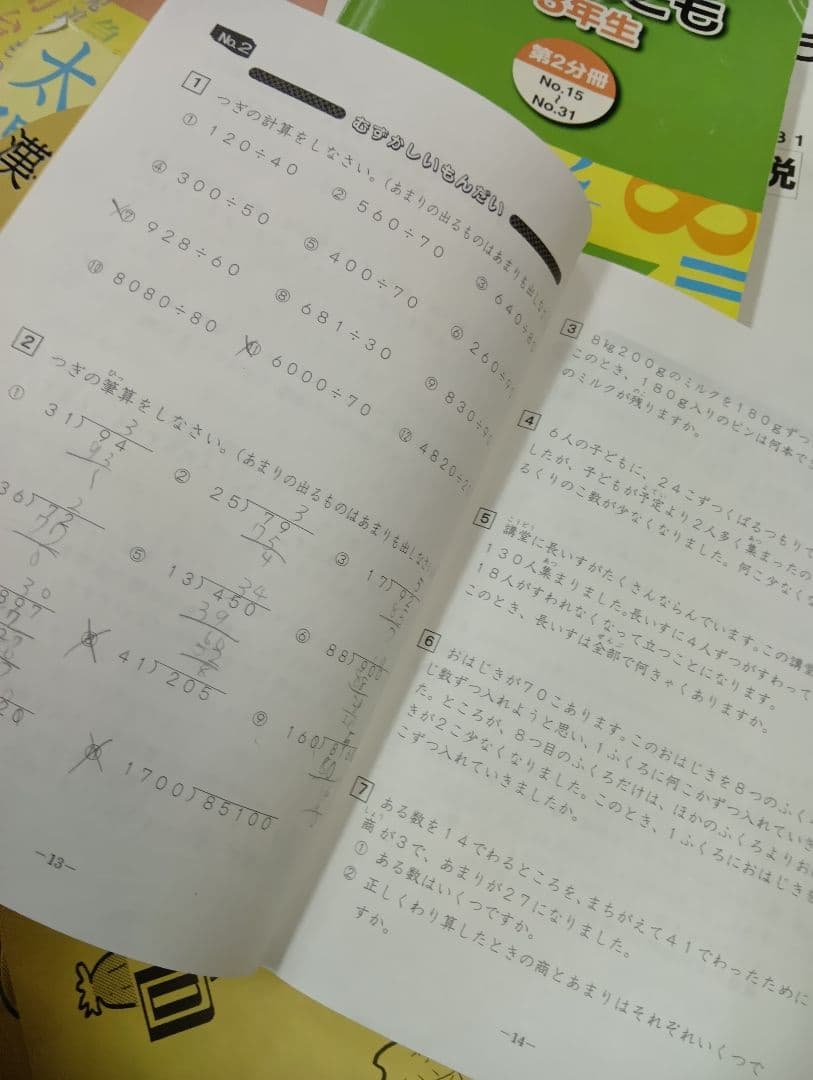 とも
3年生
第2分冊
No.15
〜
No.31
説
漢
太
No.2
むずかしいもんだい
1 つぎの計算をしなさい。(あまりの出るものはあまりも出しな
① 120÷40
② 560÷70
③ 640÷8
④ 300÷50
⑤ 400÷70
⑥ 260÷9
⑦ 928÷60
⑧ 681÷30
⑨ 830÷9
⑩ 8080÷80
⑪ 6000÷70
⑫ 4820÷2
2 つぎの筆算をしなさい。(あまりの出るものはあまりも出しなさい
ひっ
① 31)94
3
93
1
② 25)79
3
75
4
③ 17)92
5
36)72
2
72
0
⑤ 13)450
34
39
60
52
8
⑥ 88)900
30
897
⑧ 41)205
⑨ 160)810
1700)85100
—13—
3 8kg200gのミルクを180gずつ
このとき、180g入りのビンは何本で
のミルクが残りますか。
4 6人の子どもに、24こずつくばるつもりで
したが、子どもが予定より2人多く集まったの
るくりのこ数が少なくなりました。何こ少なくな
5 講堂に長いすがたくさんならんでいます。この講堂
130人集まりました。長いすに4人ずつがすわって
18人がすわれなくなって立つことになります。
このとき、長いすは全部で何きゃくありますか。
6 おはじきが70こあります。このおはじきを8つのふく
じ数ずつ入れようと思い、1ふくろに何こかずつ入れていき
た。ところが、8つ目のふくろだけは、ほかのふくろよりお
きが2こ少なくなりました。このとき、1ふくろにおはじき
こずつ入れていきましたか。
7 ある数を14でわるところを、まちがえて41でわったために
商が3で、あまりが27になりました。
① ある数はいくつですか。
② 正しくわり算したときの商とあまりはそれぞれいくつで
すか。
—14—